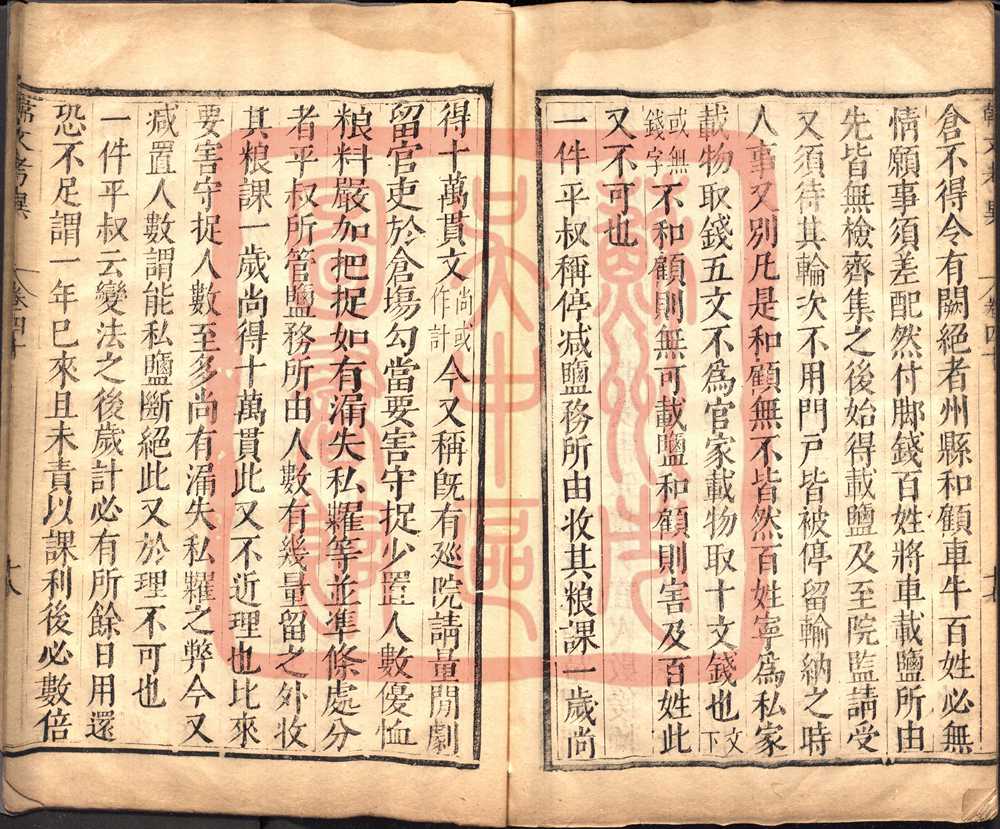 倉不得令有闕絕者州縣和顧車牛百姓必無
情願事須差配然付脚錢百姓將車載鹽所由
先皆無檢齊集之後始得載鹽及至院監請受
又須待其輪次不用門戸皆被停留輸納之時
人事又别凡是和顧無不皆然百姓寧爲私家
載物取錢五文不爲官家載物取十文錢也文下
或無錢字不和顧則無可載鹽和顧則害及百姓此
又不可也
一件平叔稱停減鹽務所由收其粮課一歲尚
得十萬貫文尚或作計今又稱旣有廵院請量閒劇
留官吏於倉塲勾當要害守捉少置人數優恤
粮料嚴加把捉如有漏失私糶等並準條處分
者平叔所管鹽務所由人數有幾量留之外收
其粮課一歲尚得十萬貫此又不近理也比來
要害守捉人數至多尚有漏失私糶之弊今又
減置人數謂能私鹽斷絕此又於理不可也
一件平叔云變法之後歲計必有所餘日用還
恐不足謂一年已來且未責以課利後必數倍
韓文考異
卷四十
十八